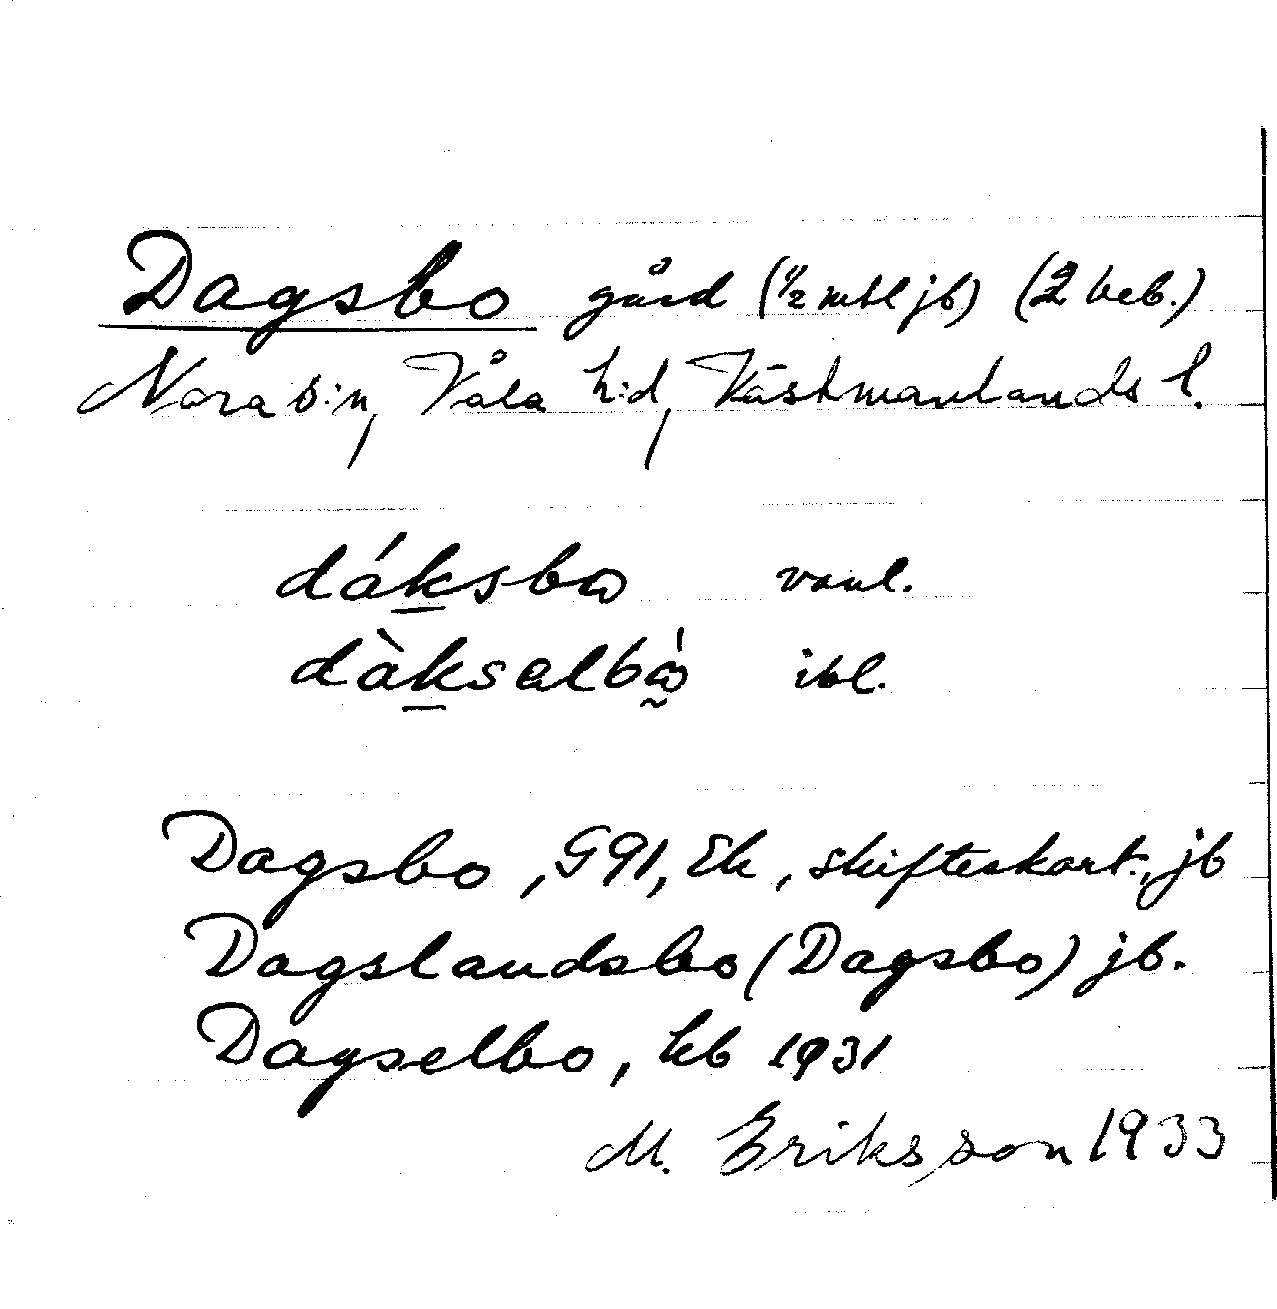 Dagsbo gård (1/2 mtl jb) (2 beb.)
Nora s:n, Våla h:d, Västmanlands l.
dáksbω vanl.
dàksalbω̰̍ ibl.
Dagsbo, G91, Ek, skifteskart., jb
Dagslandsbo (Dagsbo) jb.
Dagselbo, kb 1931
M. Eriksson 1933